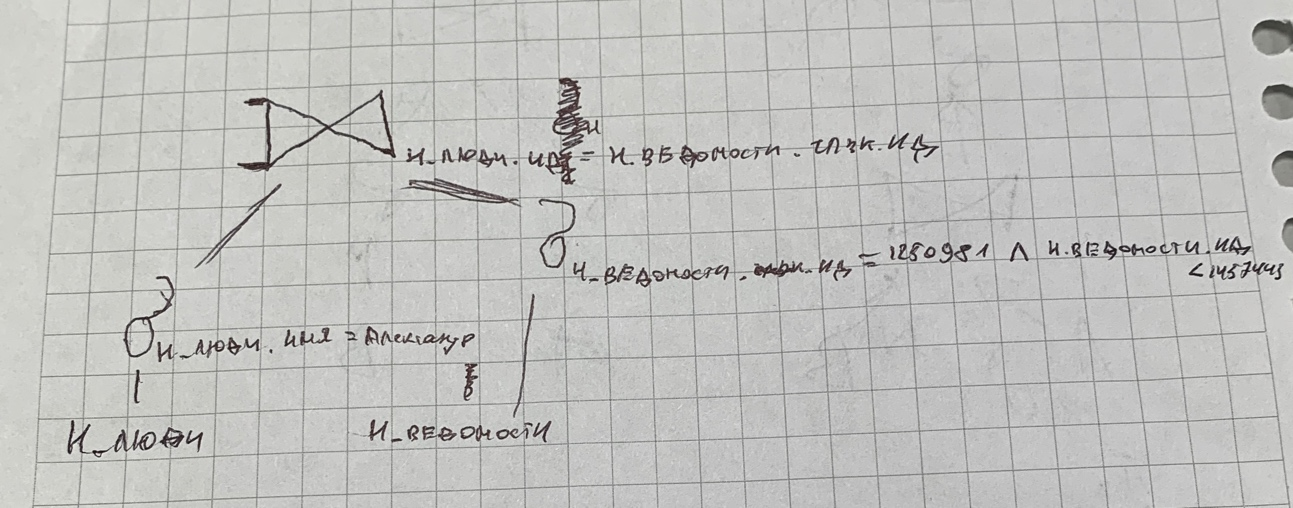 Н_ЛЮДИ.ИД = Н.ВЕДОМОСТИ.ЧЛВК.ИД
Н_ВЕДОМОСТИ.ИД = 1250981 ∧ Н.ВЕДОМОСТИ.ИД
< 1457443
σ Н_ЛЮДИ.ИМЯ = Александр
Н_ЛЮДИ
Н_ВЕДОМОСТИ